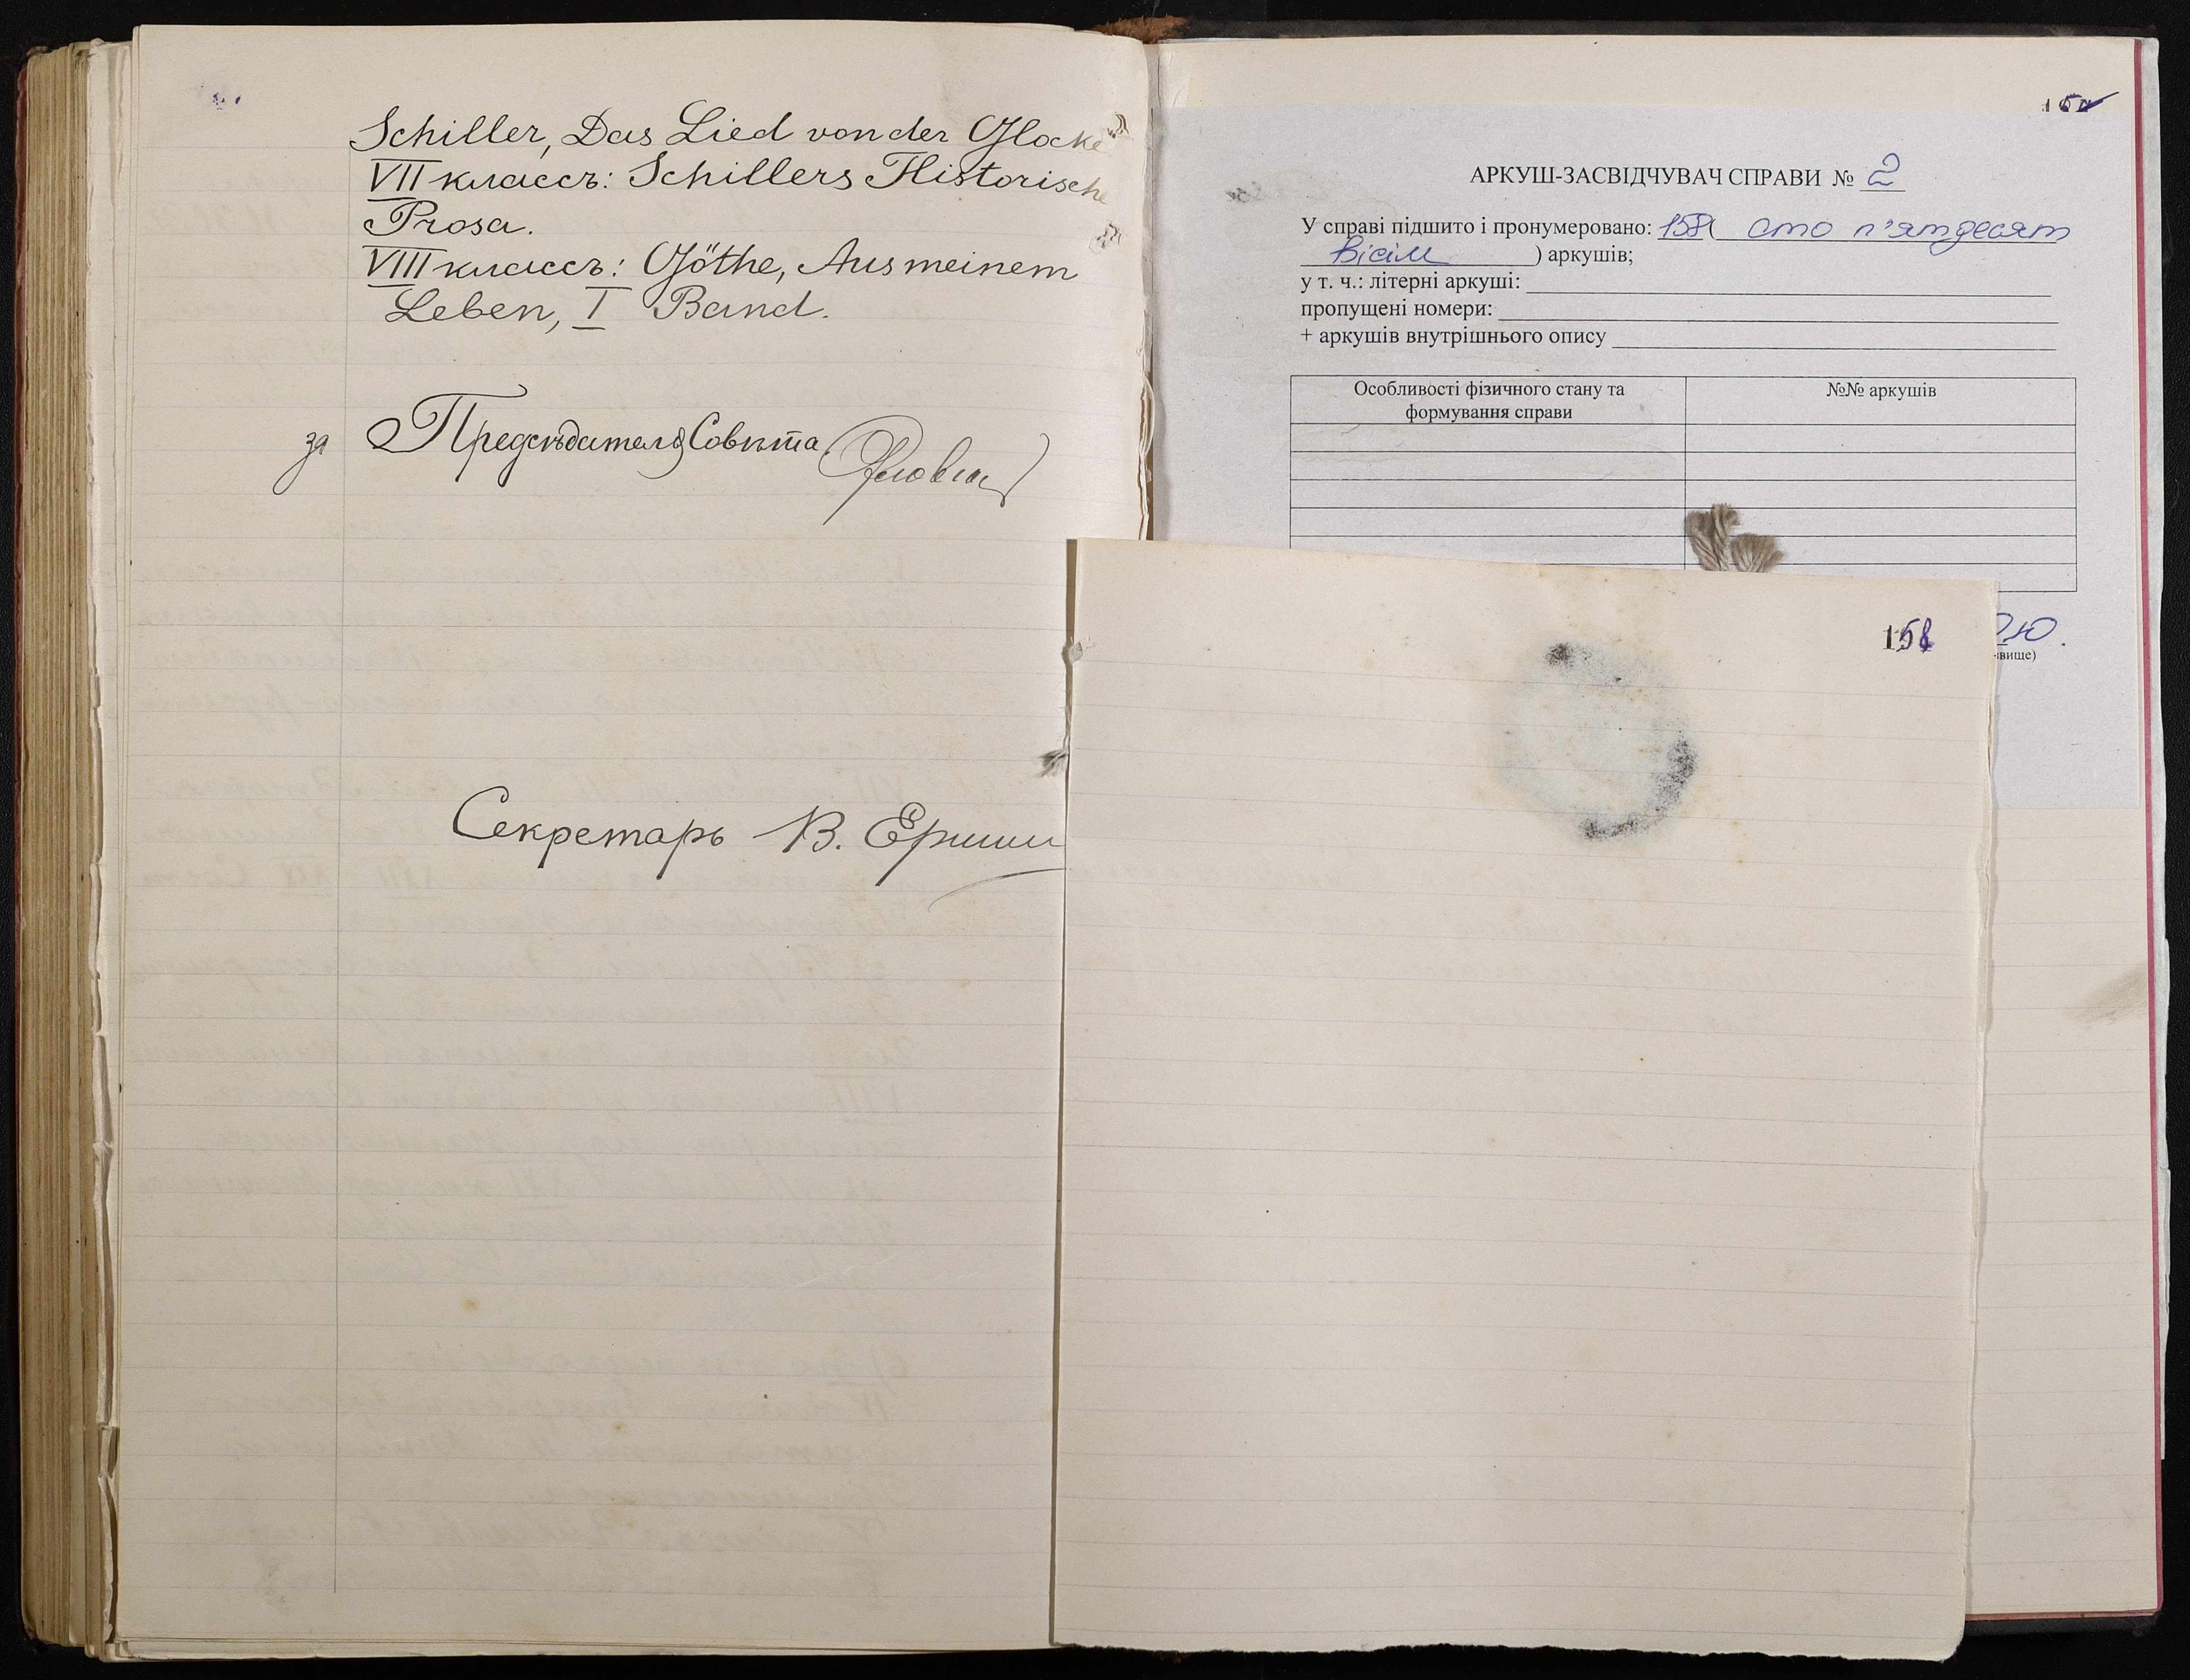 Schiller, Das Lied von der Glocke
VII классъ: Schillers Historische
Prosa.
VIII классъ: Göthe, Aus meinem
Leben, I Band.
за Предсѣдателя Совѣта
Секретарь В.
АРКУШ-ЗАСВІДЧУВАЧ СПРАВИ № 2
У справі підшито і пронумеровано: 158 ( сто п'ятдесят
вісім ) аркушів;
у т. ч.: літерні аркуші:
пропущені номери:
+ аркушів внутрішнього опису
Особливості фізичного стану та
формування справи
№№ аркушів
158